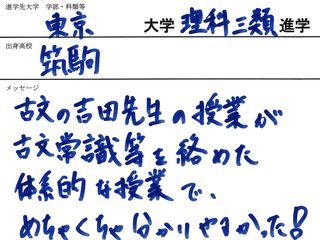 進学先大学 学部・科類等
東京大学 理科三類 進学
出身高校
筑駒
メッセージ
古文の吉田先生の授業が
古文常識等を絡めた
体系的な授業で、
めちゃくちゃ分かりやすかった!